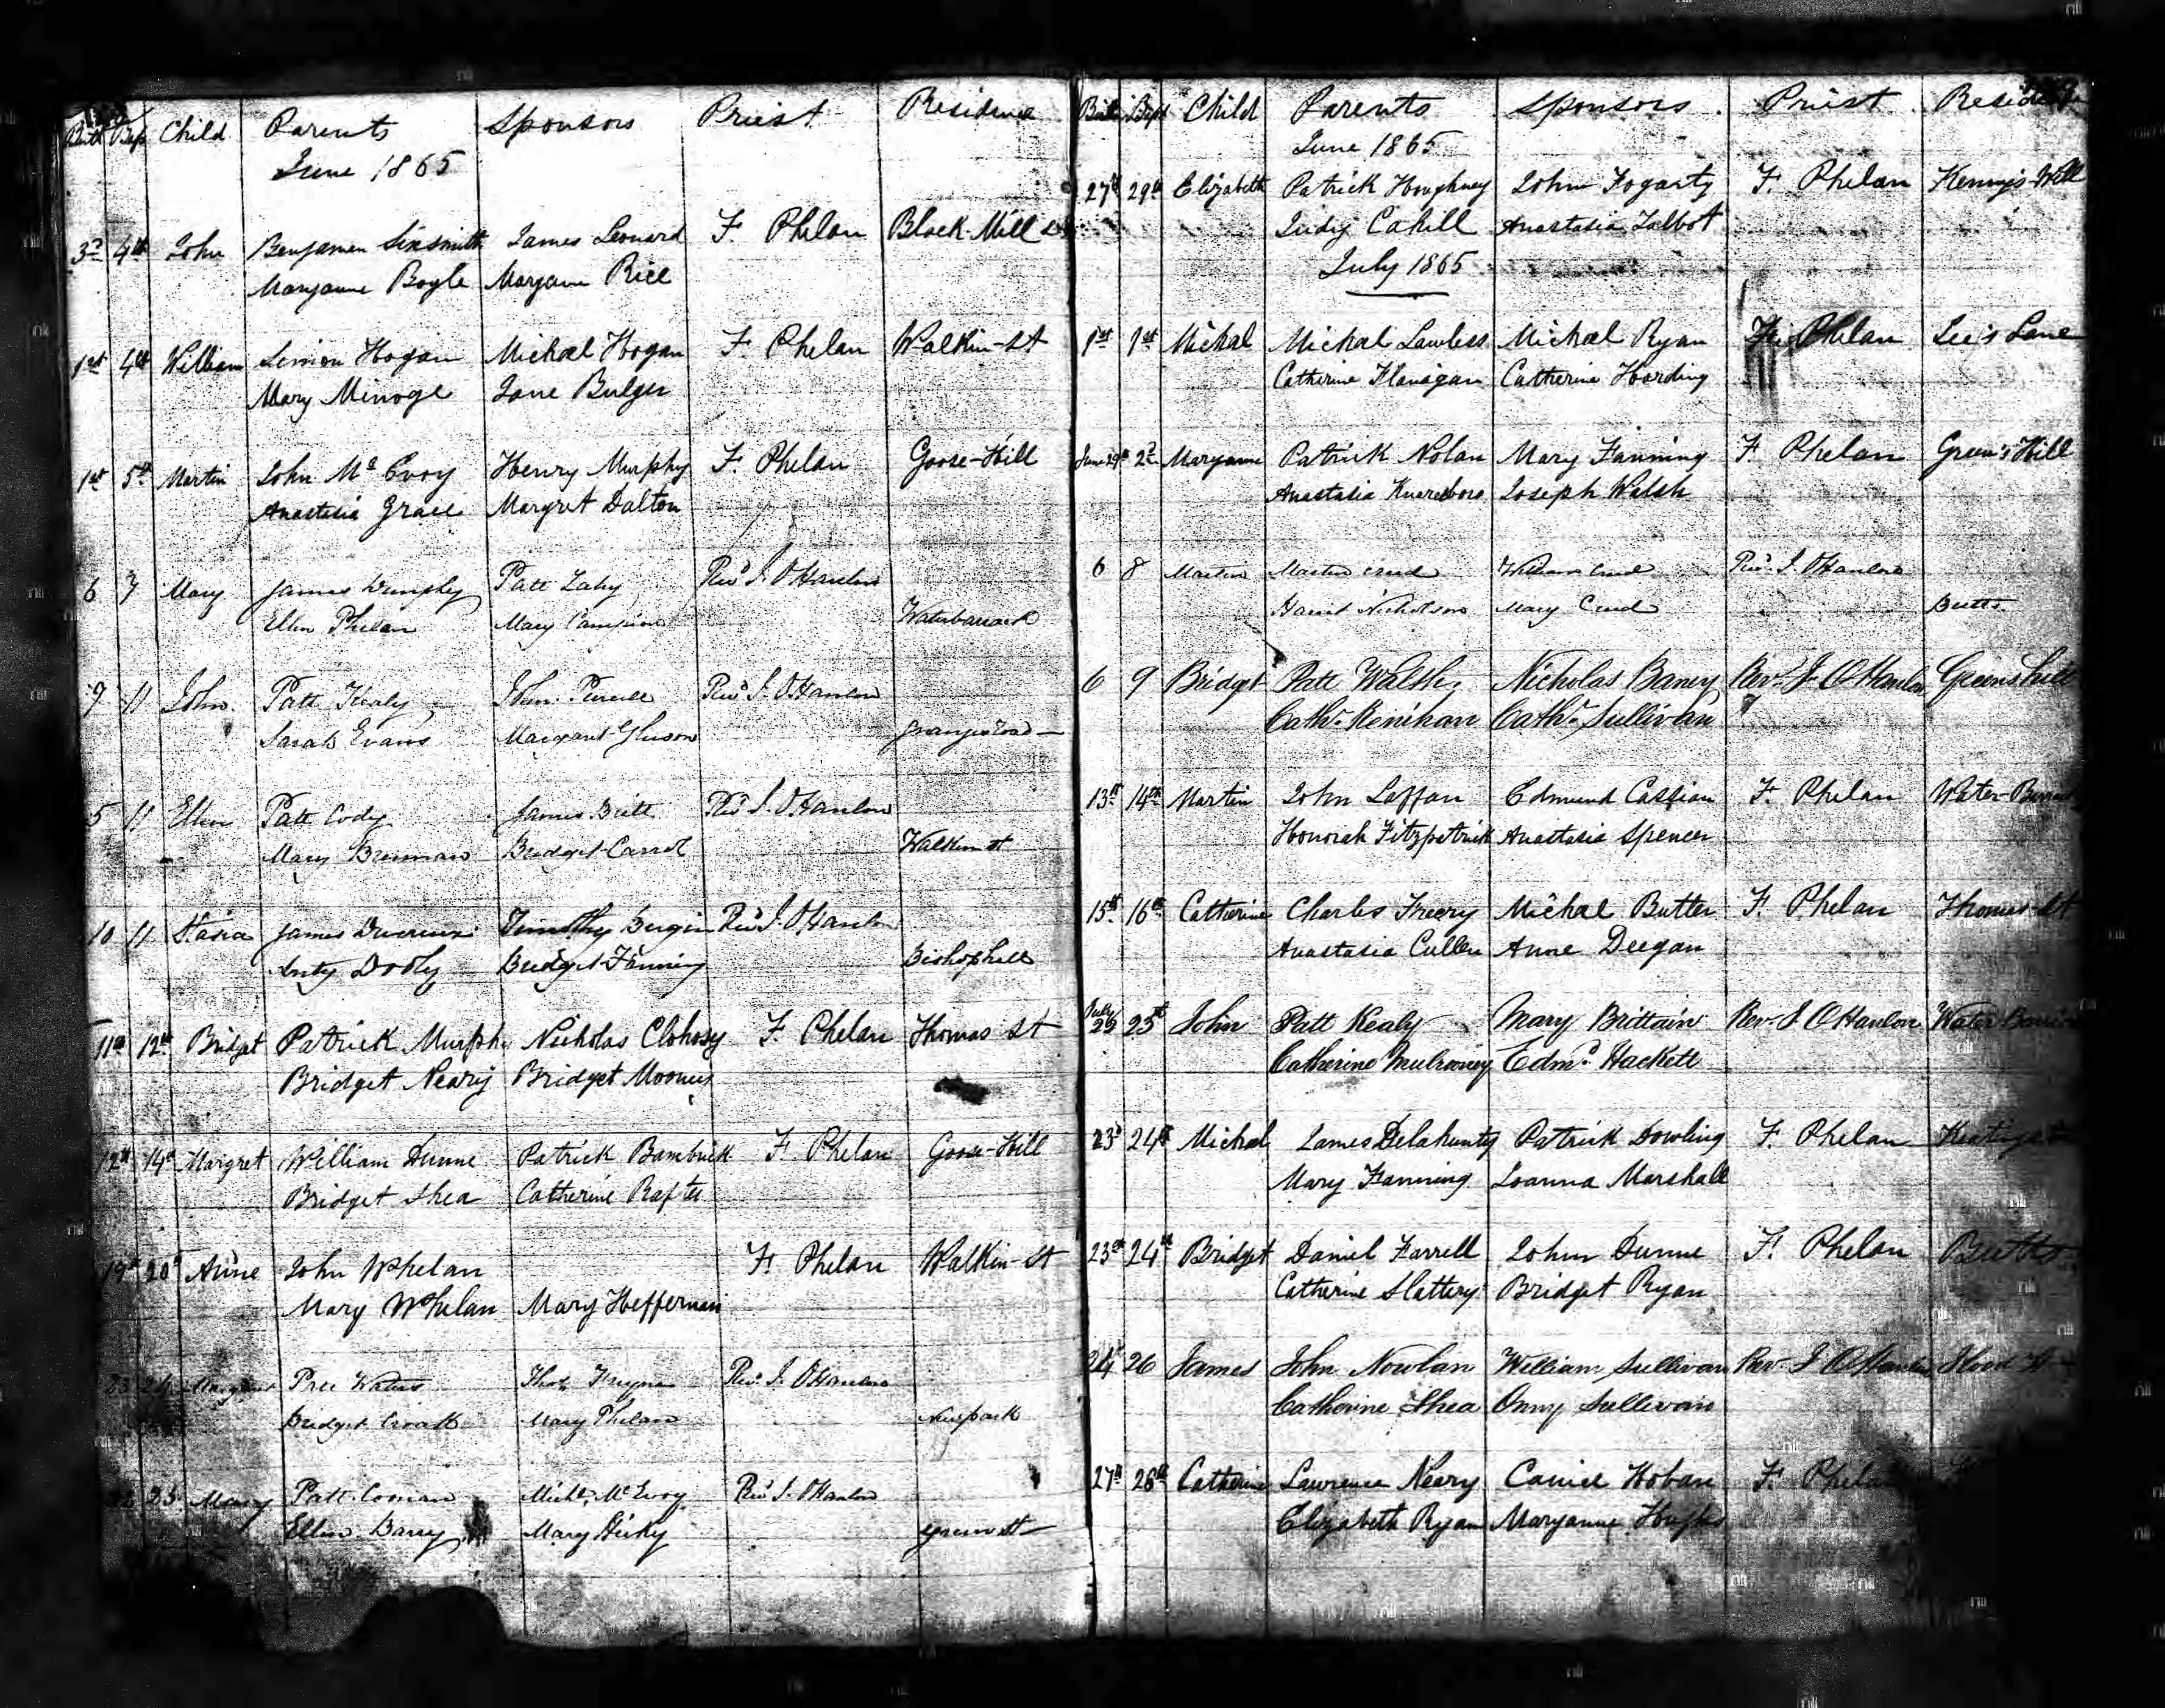 Birth Bap Child Parents Sponsors Priest Residence
June 1865
3rd 4th John Benjamen Sixsmith James Leonard F. Phelan Black-Mill St
Maryanne Boyle Maryanne Rice
1st 4th William Simon Hogan Michael Hogan F. Phelan Walkin-St
Mary Minoge Jane Bulger
1st 5th Martin John Mc Evoy Henry Murphy F. Phelan Goose-Hill
Anastasia Grace Margret Dalton
6 7 Mary James Dunphy Patt Lahy Revd J. OHanlon
Ellen Phelan Mary Campion Waterbarrack
9 11 John Patt Kealy John Purcell Revd J. OHanlon
Sarah Evans Margaret Gleeson Granges road
5 11 Ellen Patt Cody James Britt Revd J. OHanlon
Mary Brennan Bridget Carrol Walkin st
10 11 Stasia James Devereux Timothy Bergin Revd J. OHanlon
Anty Dooly Bridget Fanning Bishophill
11th 12th Bridget Patrick Murphy Nicholas Clohosy F. Phelan Thomas St
Bridget Neary Bridget Mooney
12th 14th Margret William Dunne Patrick Bambrick F. Phelan Goose-Hill
Bridget Shea Catherine Rafter
19th 20th Anne John Whelan F. Phelan Walkin-St
Mary Whelan Mary Heffernan
23 24 Margaret Waters Thos Freyne Revd J. OHanlon
Bridget Croak Mary Phelan Newpark
25 Mary Patt Coman Michl McEvoy Revd J. OHanlon
Ellen Barry Mary Hicky Green st
Birth Bapt Child Parents Sponsors Priest Residence
June 1865
27th 29th Elizabeth Patrick Houghney John Fogarty F. Phelan Kenny's-Well
Judy Cahill Anastasia Talbot
July 1865
1st 1st Michal Michal Lawless Michael Ryan F. Phelan Lee's Lane
Catherine Flanagan Catherine Harding
June 29th 2nd Maryanne Patrick Nolan Mary Fanning F. Phelan Green's Hill
Anastasia Knaresboro Joseph Walsh
6 8 Martin Martin Creed William Creed Revd. J. OHanlon
Nicholson Mary Creed Butts
6 9 Bridget Patt Walsh Nicholas Raney Rev. J. OHanlon Greens hill
Cathr. Renihan Cathr. Sullivan
13th 14th Martin John Laffan Edmund Cassian F. Phelan Water-Barrack
Honorah Fitzpatrick Anastasia Spencer
15th 16th Catherine Charles Freery Michael Butler F. Phelan Thomas-St
Anastasia Cullen Anne Deegan
July 22 23rd John Patt Kealy Mary Brittain Rev. J OHanlon Water Barrack
Catherine Mulrooney Edmd. Hackett
23rd 24th Michal James Delahunty Patrick Dowling F. Phelan
Mary Fanning Joanna Marshall
23rd 24th Bridget Daniel Farrell John Dunne F. Phelan Butts
Catherine Slattery Bridget Ryan
24th 26 James John Nowlan William Sullivan Rev. J OHanlon
Catherine Shea Onny Sullivan
27th 28th Catherine Lawrence Neary Daniel Hoban F. Phelan
Elizabeth Ryan Maryanne Hughes